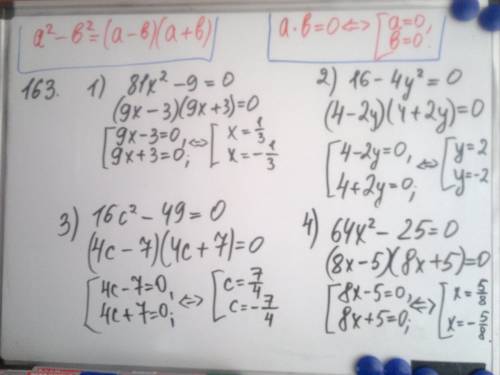 a² - b² = (a - b)(a + b)
a · b = 0 <=> [ a = 0, b = 0;
163. 1) 81x² - 9 = 0
(9x - 3)(9x + 3) = 0
[ 9x - 3 = 0, <=> [ x = 1/3
9x + 3 = 0; x = -1/3
2) 16 - 4y² = 0
(4 - 2y)(4 + 2y) = 0
[ 4 - 2y = 0, <=> [ y = 2
4 + 2y = 0; y = -2
3) 16c² - 49 = 0
(4c - 7)(4c + 7) = 0
[ 4c - 7 = 0, <=> [ c = 7/4
4c + 7 = 0; c = -7/4
4) 64x² - 25 = 0
(8x - 5)(8x + 5) = 0
[ 8x - 5 = 0, <=> [ x = 5/8
8x + 5 = 0; x = -5/8